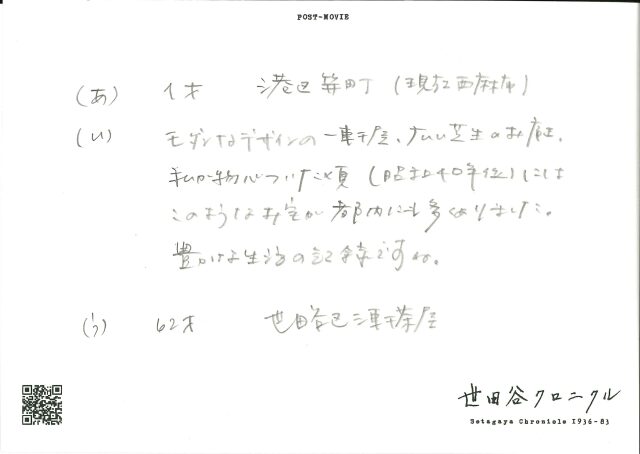 POST-MOVIE
(あ) 1才 港区笄町 (現在西麻布)
(い) モダンなデザインの一軒屋、広い芝生のお庭、
私が物心ついた頃 (昭和40年位) には
このようなお宅が都内にも多くありました。
豊かな生活の記録ですね。
(う) 62才 世田谷区三軒茶屋
世田谷クロニクル
Setagaya Chronicle 1936-83